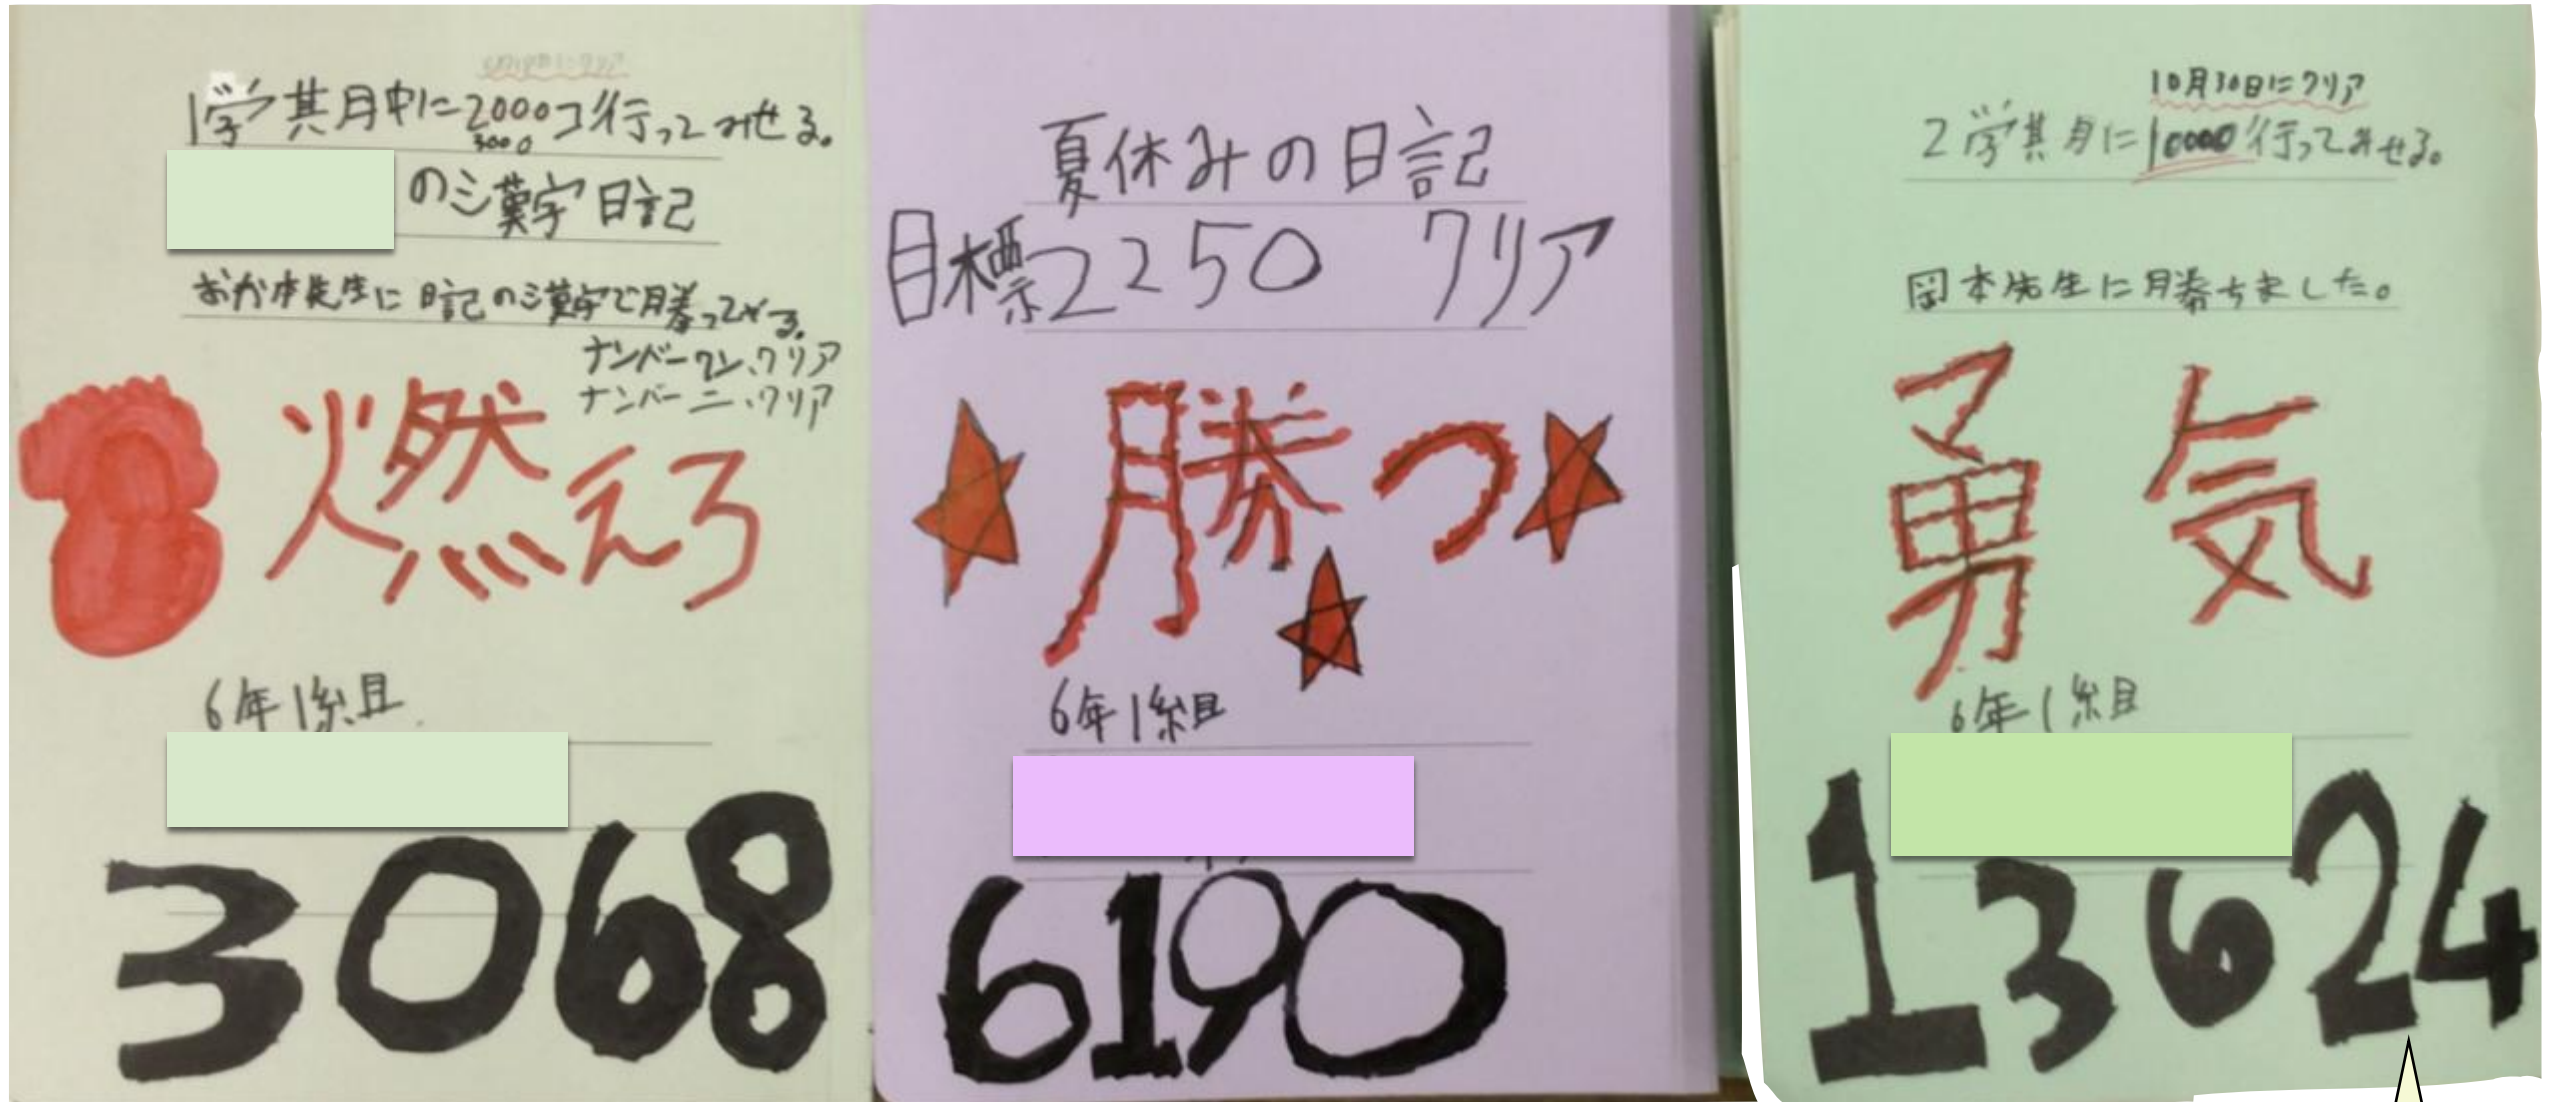 1学期中に2000コ行ってみせる。
3000
の漢字日記
おか本先生に日記の漢字で勝ってやる。
ナンバーワン、クリア
ナンバーニ、クリア
燃えろ
6年1組
3068
夏休みの日記
目標2250 クリア
勝つ
6年1組
6190
10月30日にクリア
2学期に10000行ってみせる。
岡本先生に勝ちました。
勇気
6年1組
13624